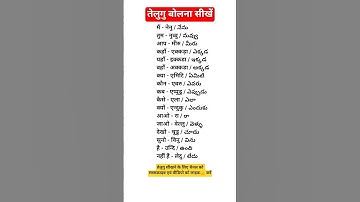 तेलुगु बोलना सीखें
मैं - नेनु / నేను
तुम - नुव्वु / నువ్వు
आप - मीरु / మీరు
कहाँ - एक्कडा / ఎక్కడ
यहाँ - इक्कडा / ఇక్కడ
वहाँ - अक्कडा / అక్కడ
क्या - एमिटि / ఏమిటి
कौन - एवरु / ఎవరు
कब - एप्पुडु / ఎప్పుడు
कैसे - एला / ఎలా
क्यों - एन्दुकु / ఎందుకు
आओ - रा / రా
जाओ - वेल्लु / వెళ్ళు
देखो - चूडु / చూడు
सुनो - विनु / విను
है - उन्दि / ఉంది
नहीं है - लेदु / లేదు
तेलुगु सीखने के लिए चैनल को
सब्सक्राइब एवं वीडियो को लाइक.... करें